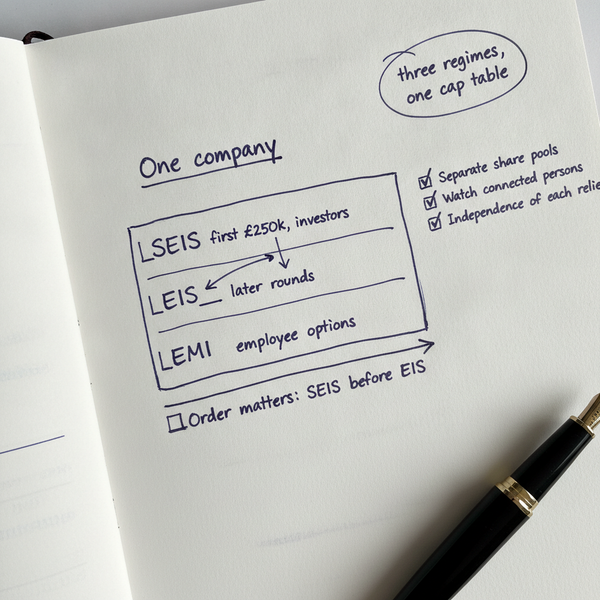 three regimes,
one cap table
One company
Separate share pools
Watch connected persons
Independence of each
LSEIS first £250k, investors
LEIS_ later rounds
LEMI employee options
Order matters: SEIS before EIS